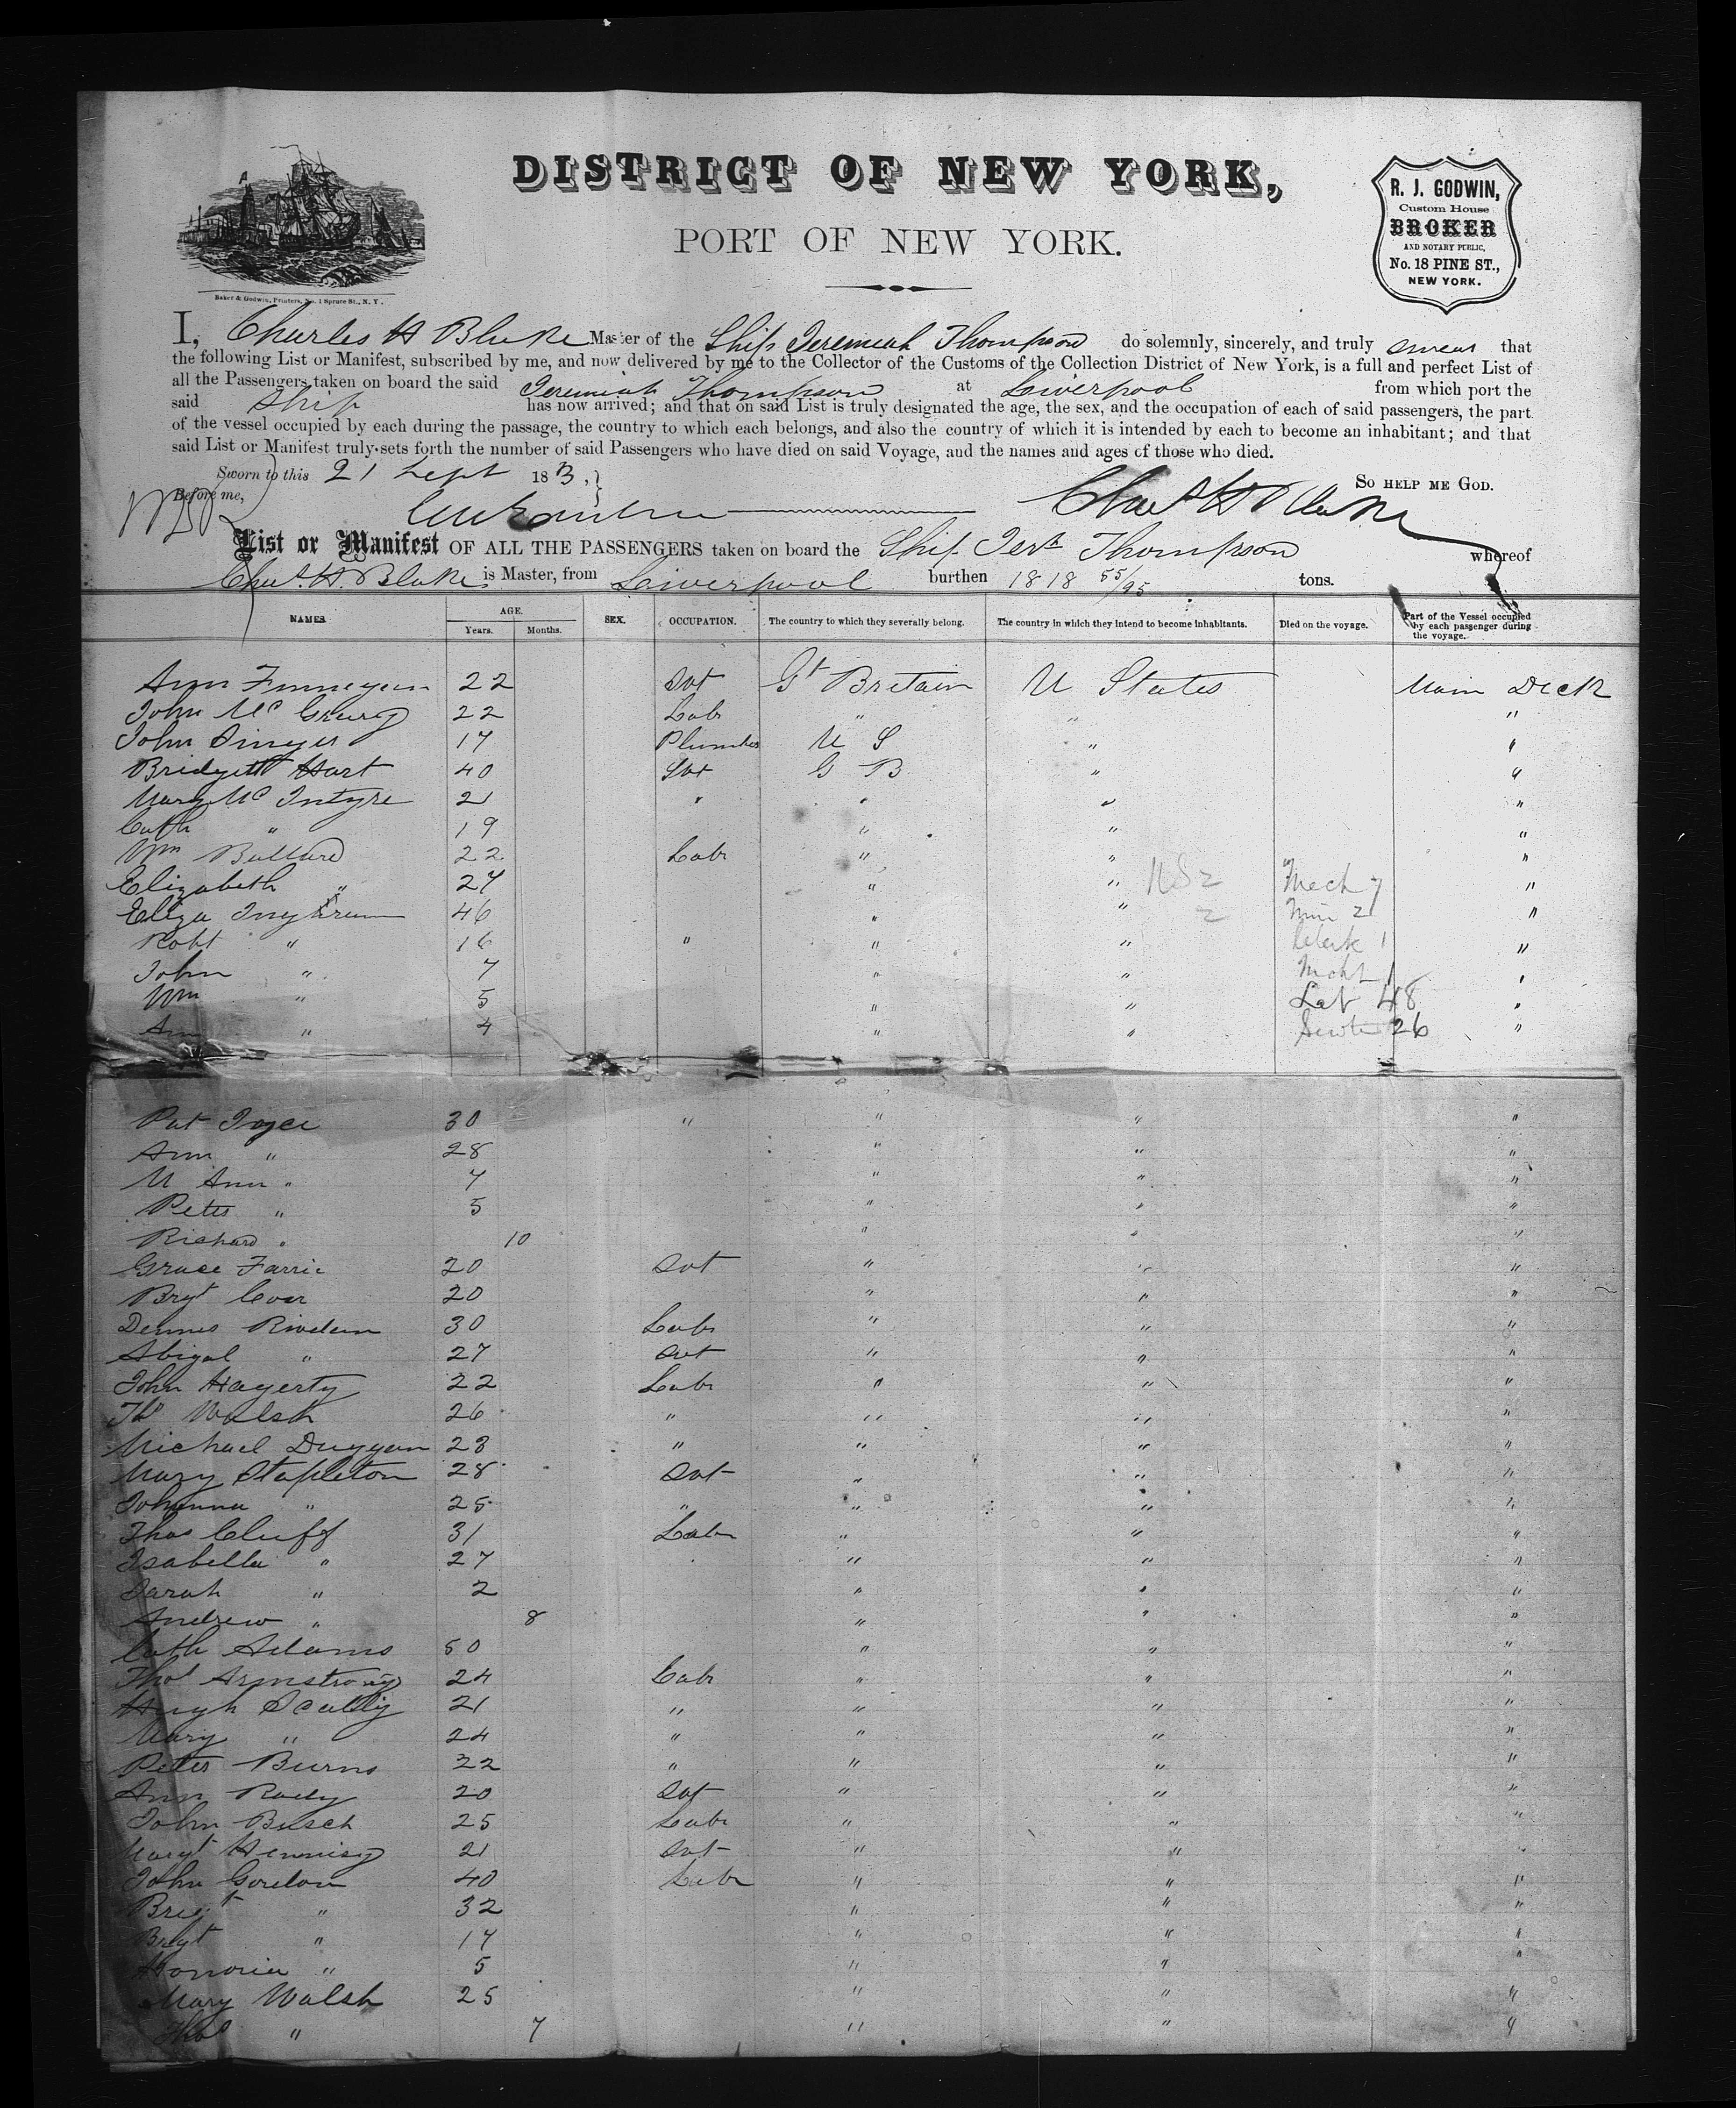 DISTRICT OF NEW YORK,
PORT OF NEW YORK.
Baker & Godwin, Printers, No. 1 Spruce St., N. Y.
R. J. GODWIN,
Custom House
BROKER
AND NOTARY PUBLIC,
No. 18 PINE ST.,
NEW YORK.
I, Charles H Blake Master of the Ship Jeremiah Thompson do solemnly, sincerely, and truly swear that
the following List or Manifest, subscribed by me, and now delivered by me to the Collector of the Customs of the Collection District of New York, is a full and perfect List of
all the Passengers taken on board the said Jeremiah Thompson at Liverpool from which port the
said Ship has now arrived; and that on said List is truly designated the age, the sex, and the occupation of each of said passengers, the part
of the vessel occupied by each during the passage, the country to which each belongs, and also the country of which it is intended by each to become an inhabitant; and that
said List or Manifest truly sets forth the number of said Passengers who have died on said Voyage, and the names and ages of those who died.
Sworn to this 21 Sept 18
Before me,
SO HELP ME GOD.
Chas H Blake
List or Manifest OF ALL THE PASSENGERS taken on board the Ship Jerh Thompson whereof
Chas. H. Blake is Master, from Liverpool burthen 1818 55/95 tons.
NAMES AGE. Years. Months. SEX. OCCUPATION. The country to which they severally belong. The country in which they intend to become inhabitants. Died on the voyage. Part of the Vessel occupied by each passenger during the voyage.
Ann Finnegan 22 Svt Gt Britain U States Main Deck
John Mc 22 Labr " " "
John 17 Plumber U S " "
Bridgett Hart 40 Svt G B " "
Mary Mc Intyre 21 " " " "
Cath " 19 " " "
Wm Bullard 22 Labr " " "
Elizabeth " 27 " " US 2 Mech 7 "
Eliza Inghram 46 " " 2 Min 2 "
Robt " 16 " " " Clerk 1 "
John " 7 " " Mcht 1 "
Wm " 5 " " Lab 48 "
Ann " 4 " " 26 "
Pat Joyce 30 " " " "
Ann " 28 " " "
M Ann " 7 " " "
Peter " 5 " " "
Richard " 10 " " "
Grace Farric 20 Svt " " "
Bryt 20 " " "
Dennis Riodan 30 Labr " " "
Abigal " 27 Svt " " "
John Hagerty 22 Labr " " "
Ths Walsh 26 " " " "
Michael Duggan 23 " " " "
Mary Stapleton 28 Svt " " "
Johanna " 25 " " " "
Thos Cluff 31 Labr " " "
Isabella " 27 " " "
Sarah " 2 " " "
Andrew " 8 " " "
Cath Adams 50 " " "
Thos Armstrong 24 Labr " " "
Hugh Scully 21 " " " "
Mary " 24 " " " "
Peter Burns 22 " " " "
Ann Rody 20 Svt " " "
John Busch 25 Labr " " "
Margt Hennisy 21 Svt " " "
John Gordon 40 Labr " " "
Brigt " 32 " " "
Brigt " 17 " " "
Honoria " 5 " " "
Mary Walsh 25 " " "
Thos " 7 " " "